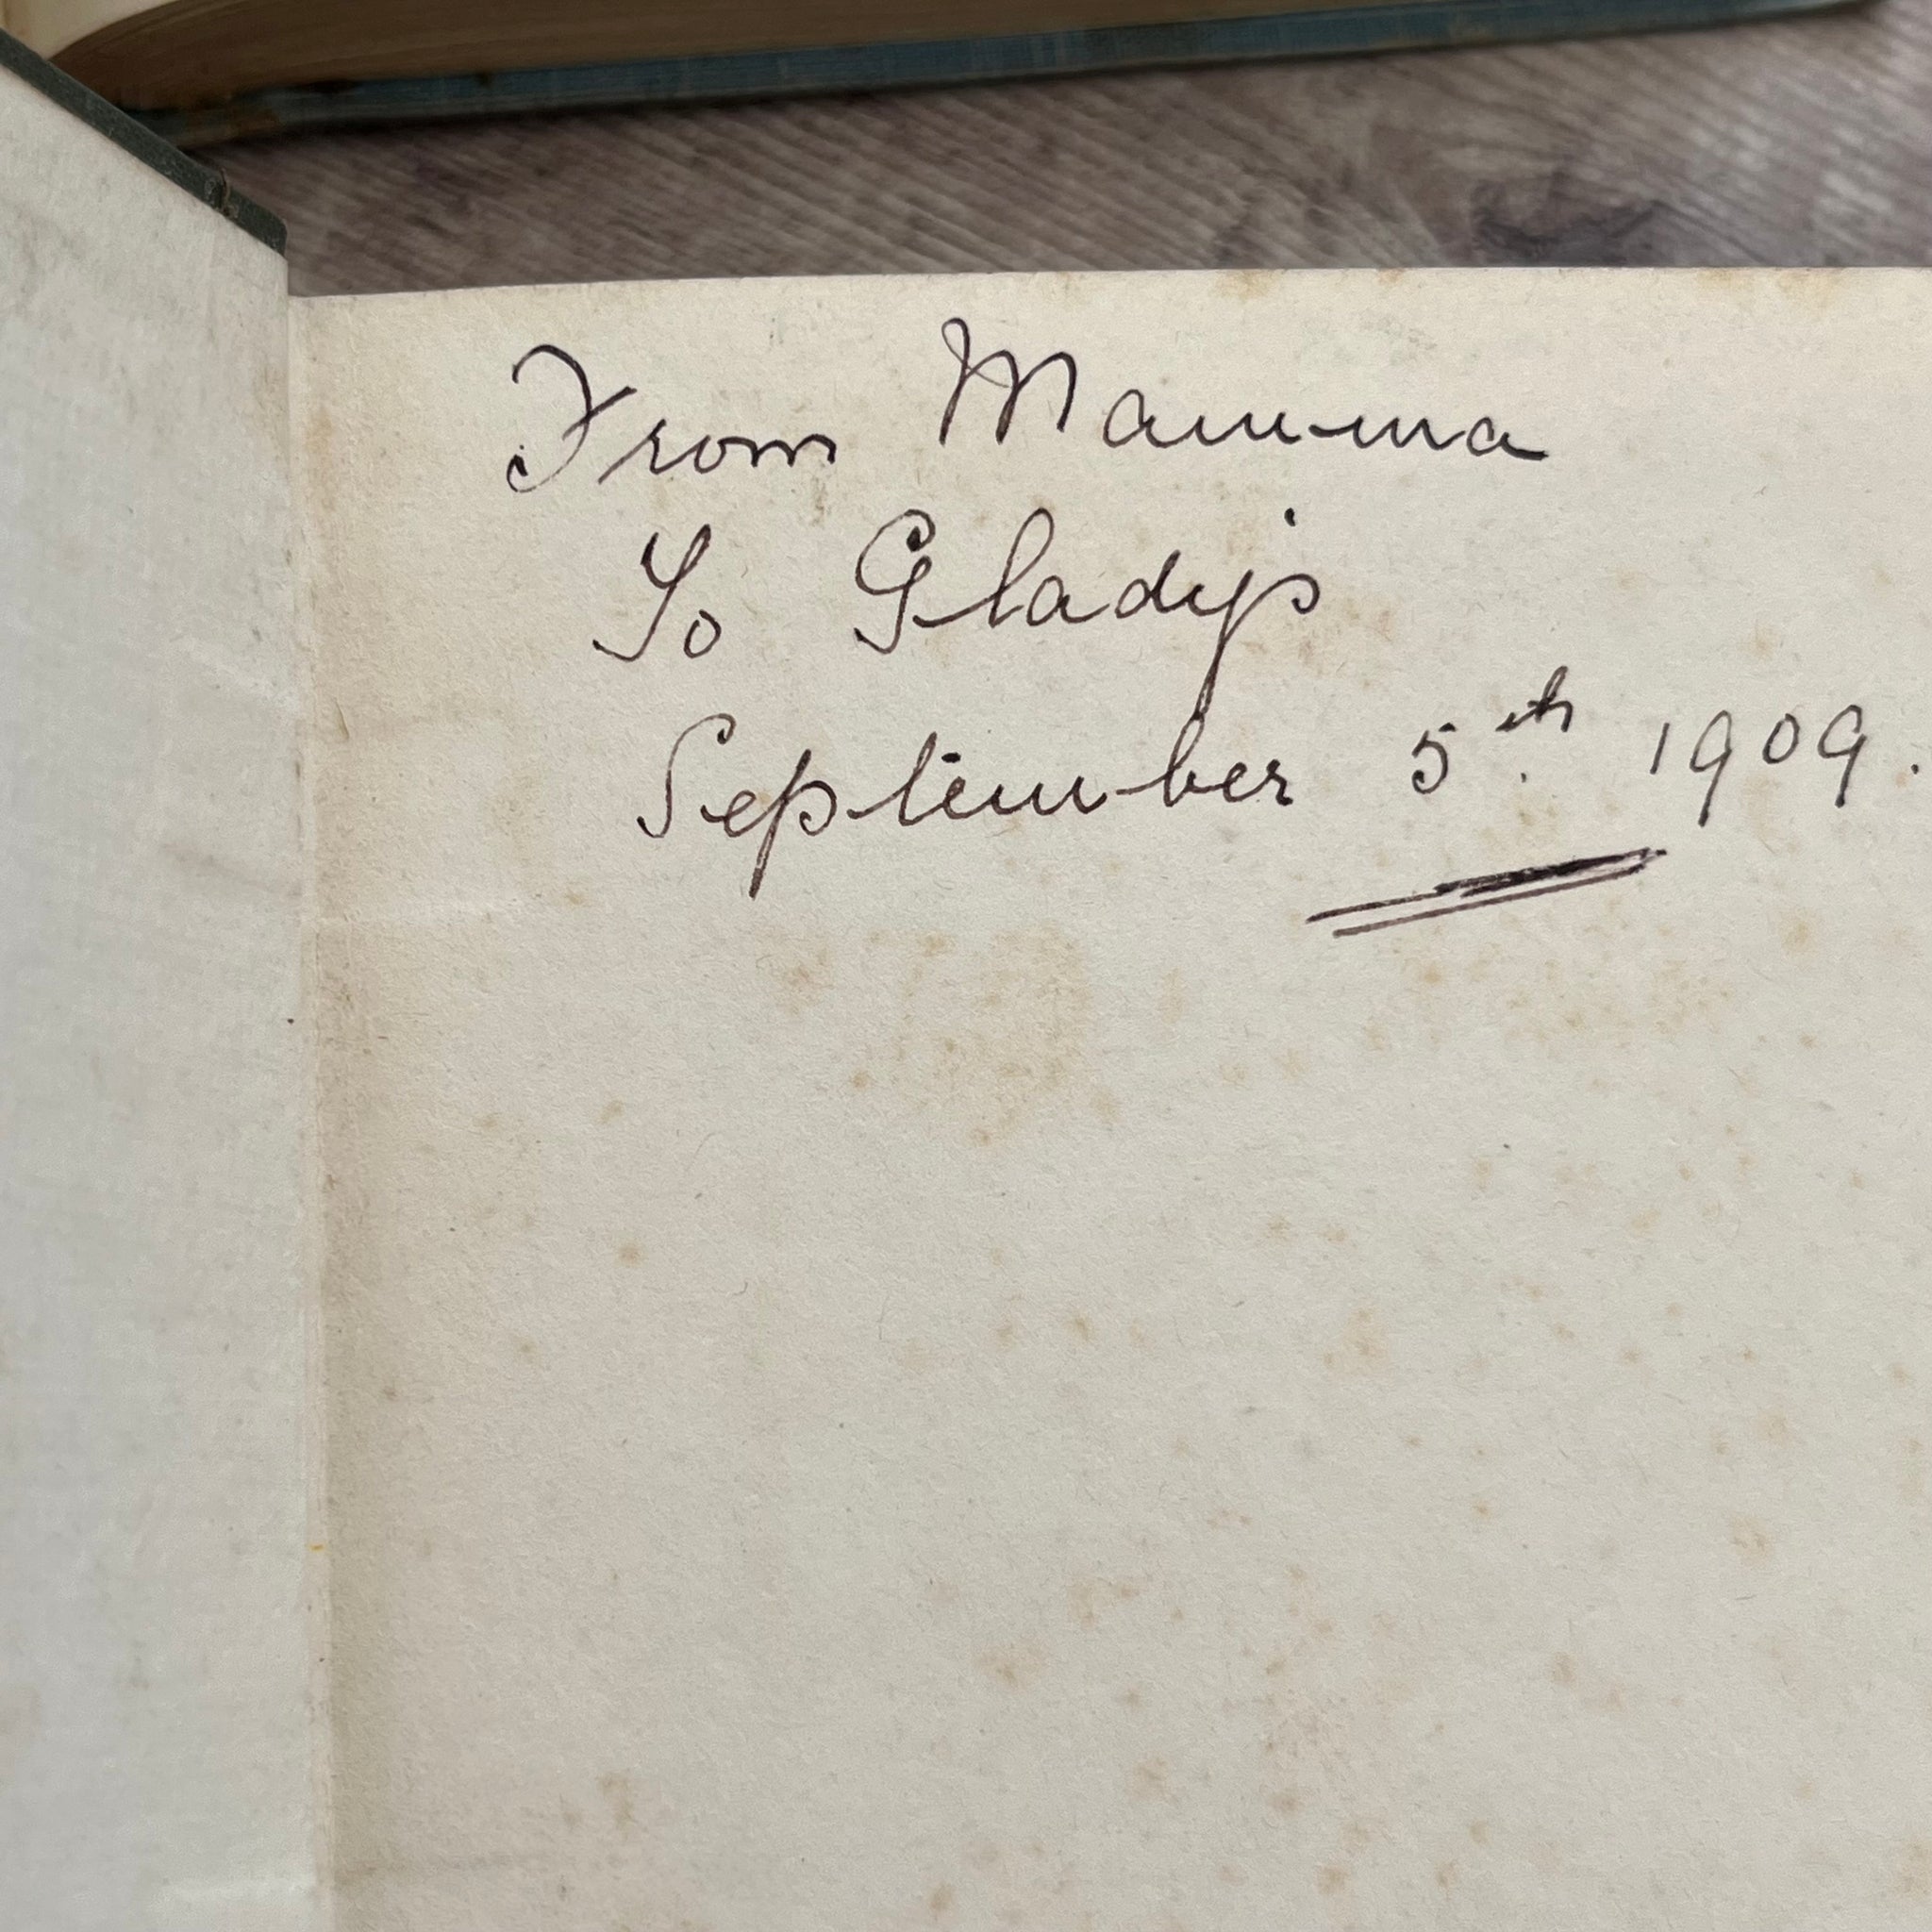 From Mamma
To Gladys
September 5th 1909.